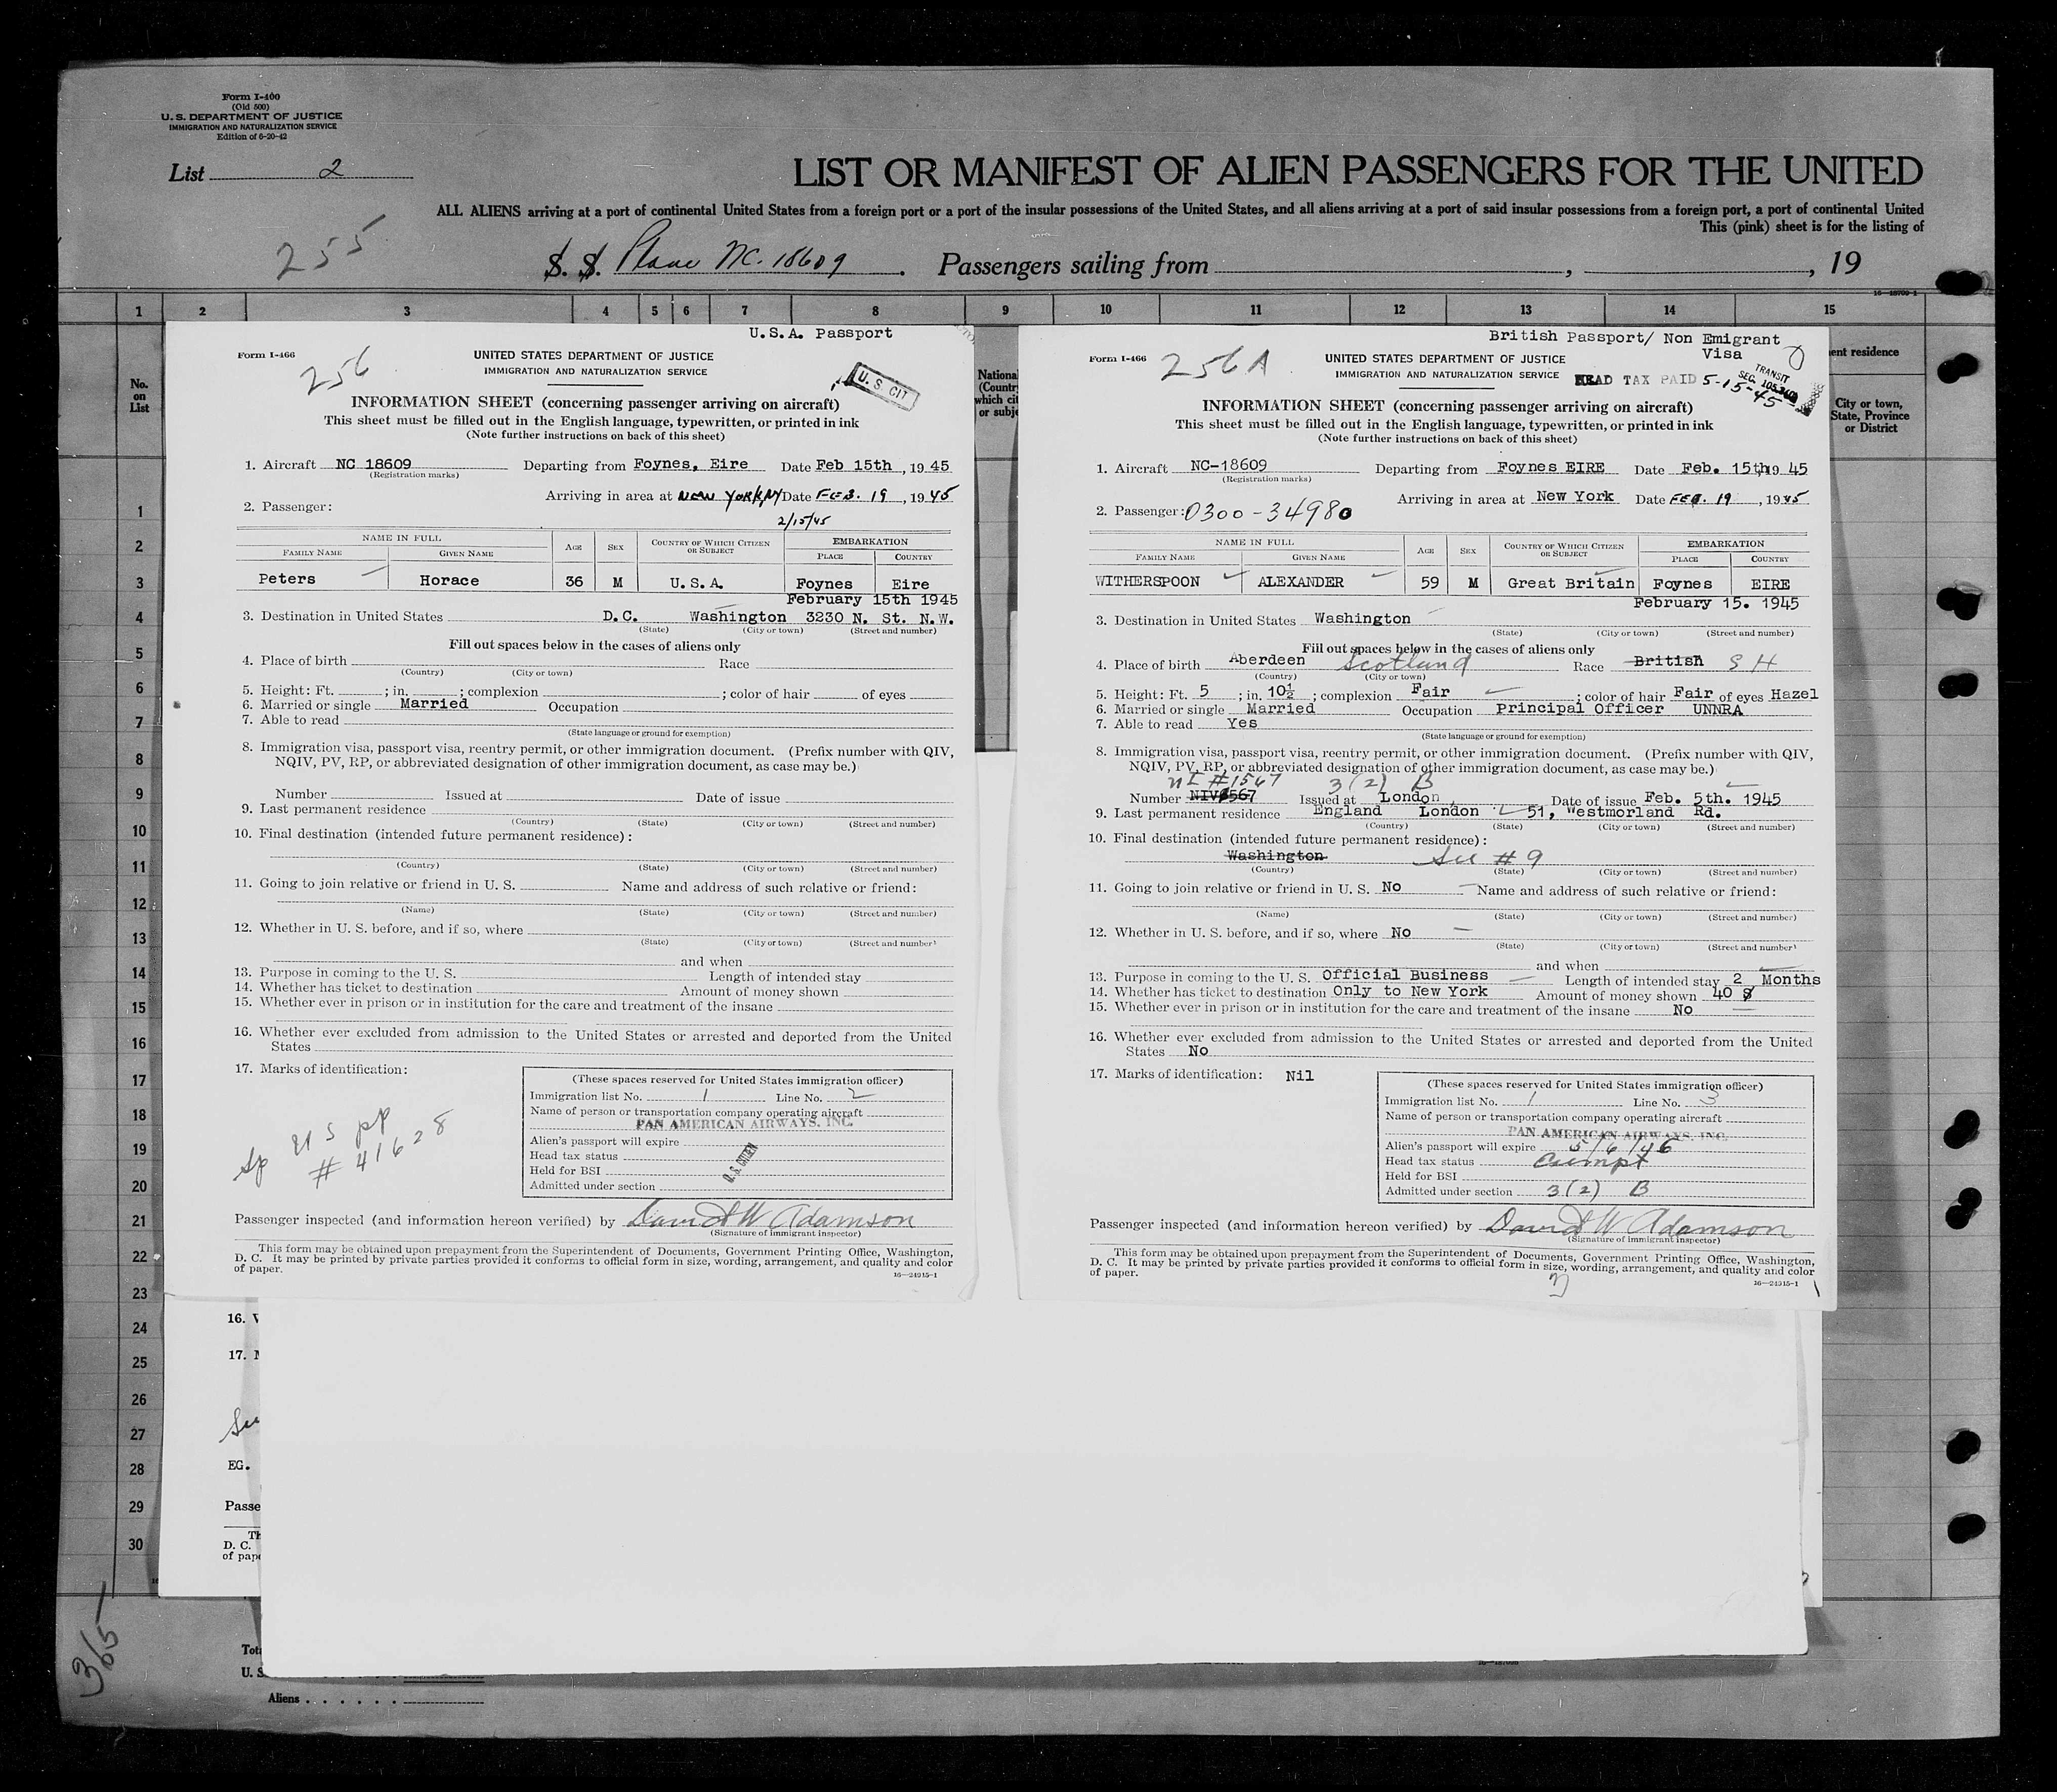 Form I-400
(Old 500)
U. S. DEPARTMENT OF JUSTICE
IMMIGRATION AND NATURALIZATION SERVICE
Edition of 6-20-42
List 2
LIST OR MANIFEST OF ALIEN PASSENGERS FOR THE UNITED
ALL ALIENS arriving at a port of continental United States from a foreign port or a port of the insular possessions of the United States, and all aliens arriving at a port of said insular possessions from a foreign port, a port of continental United
This (pink) sheet is for the listing of
255
S. S. Plane NC. 18609 . Passengers sailing from , , 19
1 2 3 4 5 6 7 8 9 10 11 12 13 14 15
No.
on
List
National
(Country
which cit
or subje
ent residence
City or town,
State, Province
or District
1
2
3
4
5
6
7
8
9
10
11
12
13
14
15
16
17
18
19
20
21
22
23
24
25
26
27
28
29
30
U.S.A. Passport
Form I-466
256
UNITED STATES DEPARTMENT OF JUSTICE
IMMIGRATION AND NATURALIZATION SERVICE
U. S. CIT
INFORMATION SHEET (concerning passenger arriving on aircraft)
This sheet must be filled out in the English language, typewritten, or printed in ink
(Note further instructions on back of this sheet)
1. Aircraft NC 18609 Departing from Foynes, Eire Date Feb 15th , 19 45
(Registration marks)
Arriving in area at NEW YORK, NY Date FEB. 19 , 1945
2. Passenger:
2/15/45
NAME IN FULL AGE SEX COUNTRY OF WHICH CITIZEN OR SUBJECT EMBARKATION
FAMILY NAME GIVEN NAME PLACE COUNTRY
Peters Horace 36 M U.S.A. Foynes Eire
February 15th 1945
3. Destination in United States D.C. Washington 3230 N. St. N.W.
(State) (City or town) (Street and number)
Fill out spaces below in the cases of aliens only
4. Place of birth Race
(Country) (City or town)
5. Height: Ft. ; in. ; complexion ; color of hair of eyes
6. Married or single Married Occupation
7. Able to read
(State language or ground for exemption)
8. Immigration visa, passport visa, reentry permit, or other immigration document. (Prefix number with QIV,
NQIV, PV, RP, or abbreviated designation of other immigration document, as case may be.)
Number Issued at Date of issue
9. Last permanent residence
(Country) (State) (City or town) (Street and number)
10. Final destination (intended future permanent residence):
(Country) (State) (City or town) (Street and number)
11. Going to join relative or friend in U. S. Name and address of such relative or friend:
(Name) (State) (City or town) (Street and number)
12. Whether in U. S. before, and if so, where
(State) (City or town) (Street and number)
and when
13. Purpose in coming to the U. S. Length of intended stay
14. Whether has ticket to destination Amount of money shown
15. Whether ever in prison or in institution for the care and treatment of the insane
16. Whether ever excluded from admission to the United States or arrested and deported from the United
States
17. Marks of identification:
Sp US pp
# 41628
(These spaces reserved for United States immigration officer)
Immigration list No. 1 Line No. 2
Name of person or transportation company operating aircraft
PAN AMERICAN AIRWAYS, INC.
Alien's passport will expire
Head tax status
Held for BSI
Admitted under section
U. S. CITIZEN
Passenger inspected (and information hereon verified) by David W Adamson
(Signature of immigrant inspector)
This form may be obtained upon prepayment from the Superintendent of Documents, Government Printing Office, Washington,
D. C. It may be printed by private parties provided it conforms to official form in size, wording, arrangement, and quality and color
of paper.
16—24915-1
British Passport/ Non Emigrant
Visa
Form I-466
256A
UNITED STATES DEPARTMENT OF JUSTICE
IMMIGRATION AND NATURALIZATION SERVICE
HEAD TAX PAID 5-15-45
TRANSIT
INFORMATION SHEET (concerning passenger arriving on aircraft)
This sheet must be filled out in the English language, typewritten, or printed in ink
(Note further instructions on back of this sheet)
1. Aircraft NC-18609 Departing from Foynes EIRE Date Feb. 15th, 19 45
(Registration marks)
Arriving in area at New York Date FEB. 19 , 1945
2. Passenger: 0300-34980
NAME IN FULL AGE SEX COUNTRY OF WHICH CITIZEN OR SUBJECT EMBARKATION
FAMILY NAME GIVEN NAME PLACE COUNTRY
WITHERSPOON ALEXANDER 59 M Great Britain Foynes EIRE
February 15. 1945
3. Destination in United States Washington
(State) (City or town) (Street and number)
Fill out spaces below in the cases of aliens only
4. Place of birth Aberdeen Scotland Race British SH
(Country) (City or town)
5. Height: Ft. 5 ; in. 10½ ; complexion Fair ; color of hair Fair of eyes Hazel
6. Married or single Married Occupation Principal Officer UNNRA
7. Able to read Yes
(State language or ground for exemption)
8. Immigration visa, passport visa, reentry permit, or other immigration document. (Prefix number with QIV,
NQIV, PV, RP, or abbreviated designation of other immigration document, as case may be.)
NI #1567 3(2) B
Number NIV1567 Issued at London Date of issue Feb. 5th. 1945
9. Last permanent residence England London 51, Westmorland Rd.
(Country) (State) (City or town) (Street and number)
10. Final destination (intended future permanent residence):
Washington See #9
(Country) (State) (City or town) (Street and number)
11. Going to join relative or friend in U. S. No Name and address of such relative or friend:
(Name) (State) (City or town) (Street and number)
12. Whether in U. S. before, and if so, where No
(State) (City or town) (Street and number)
and when
13. Purpose in coming to the U. S. Official Business Length of intended stay 2 Months
14. Whether has ticket to destination Only to New York Amount of money shown 40 $
15. Whether ever in prison or in institution for the care and treatment of the insane No
16. Whether ever excluded from admission to the United States or arrested and deported from the United
States No
17. Marks of identification: Nil
(These spaces reserved for United States immigration officer)
Immigration list No. 1 Line No. 3
Name of person or transportation company operating aircraft
PAN AMERICAN AIRWAYS, INC.
Alien's passport will expire 5/6/46
Head tax status Exempt
Held for BSI
Admitted under section 3(2) B
Passenger inspected (and information hereon verified) by David W Adamson
(Signature of immigrant inspector)
This form may be obtained upon prepayment from the Superintendent of Documents, Government Printing Office, Washington,
D. C. It may be printed by private parties provided it conforms to official form in size, wording, arrangement, and quality and color
of paper.
16—24915-1
16.
17.
EG.
Passe
Th
D. C.
of pape
365
Tot
U. S
Aliens